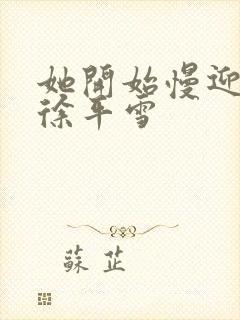 她開始慢迎
徐平雪
蘇芷